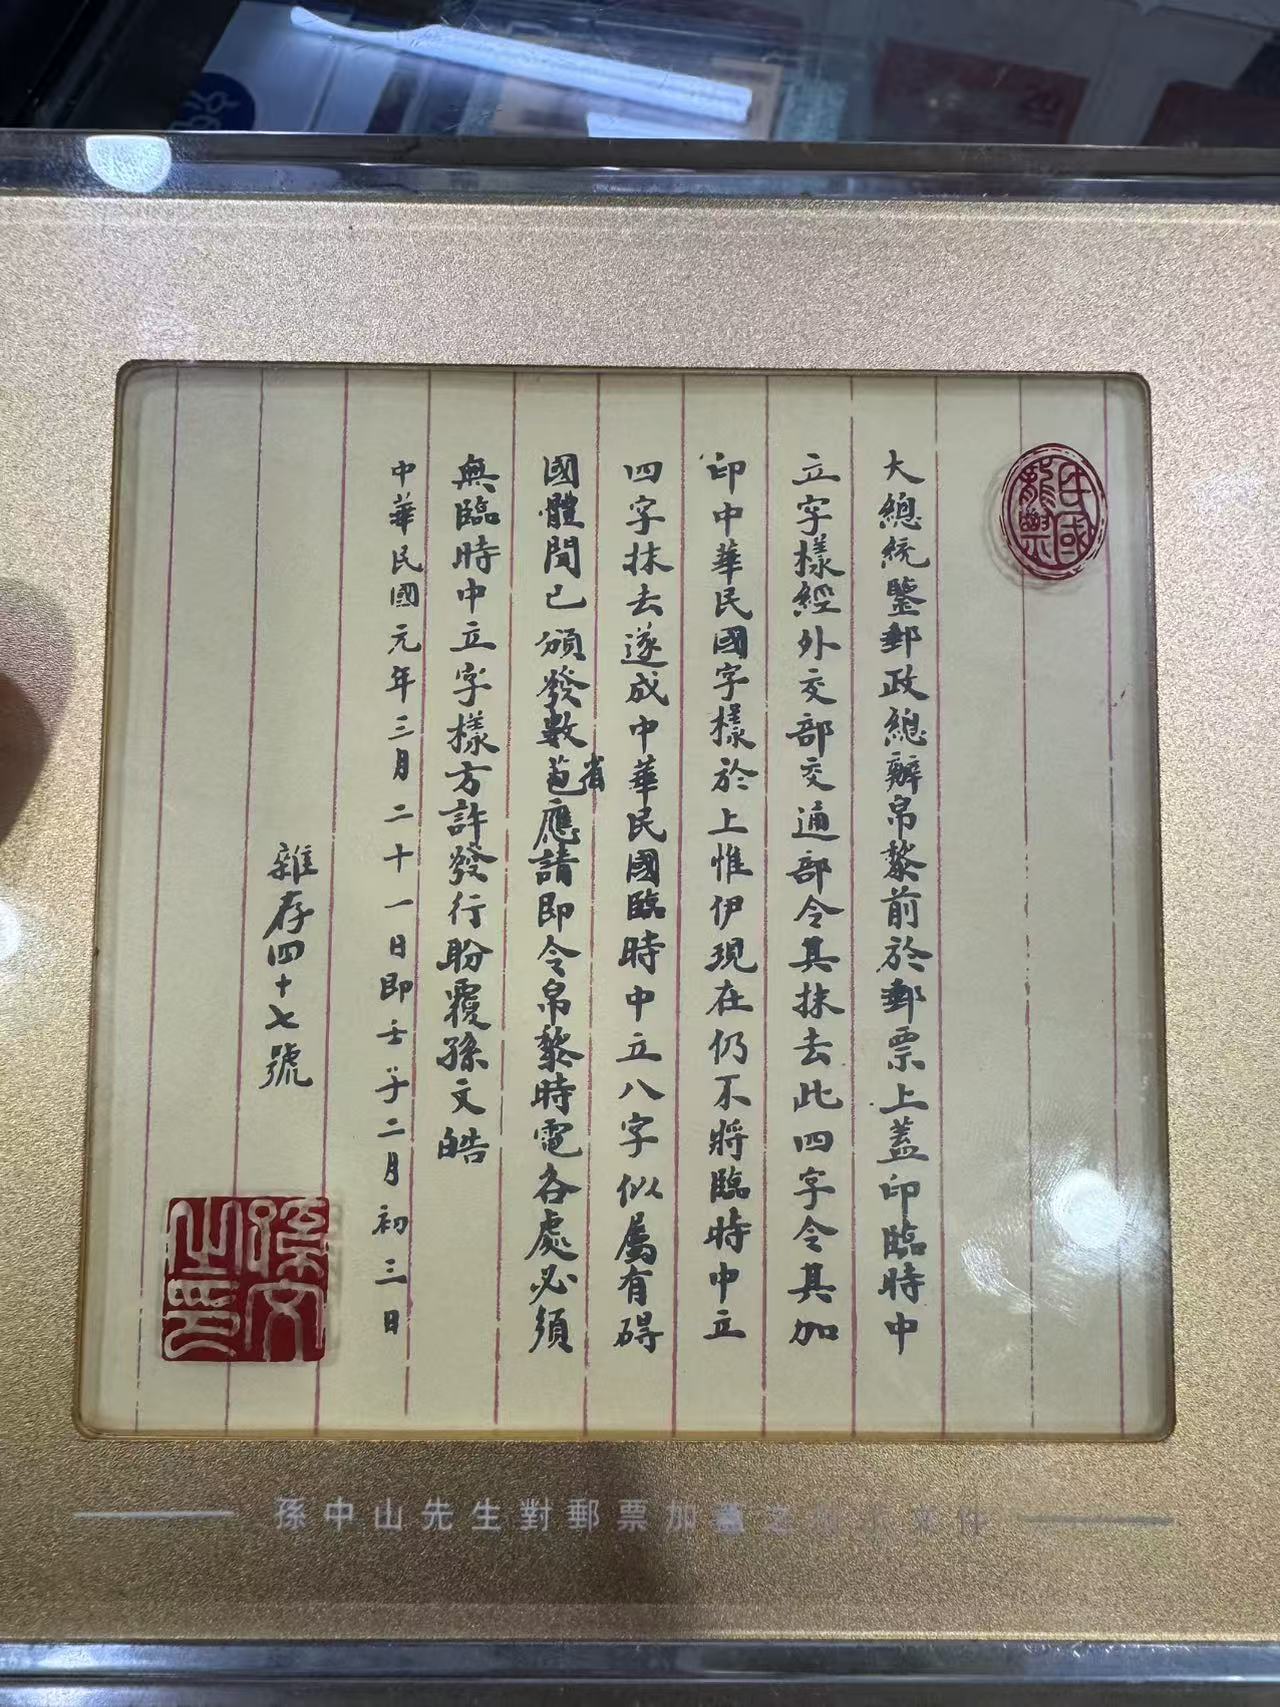 民國
龍興
大總統鑒郵政總辦帛黎前於郵票上蓋印臨時中
立字樣經外交部交通部令其抹去此四字令其加
印中華民國字樣於上惟伊現在仍不將臨時中立
四字抹去遂成中華民國臨時中立八字似屬有碍
國體聞已頒發數省應請即令帛黎時電各處必須
無臨時中立字樣方許發行盼覆孫文皓
中華民國元年三月二十一日即壬子二月初三日
雜存四十七號
孫文
之印
孫中山先生對郵票加蓋之